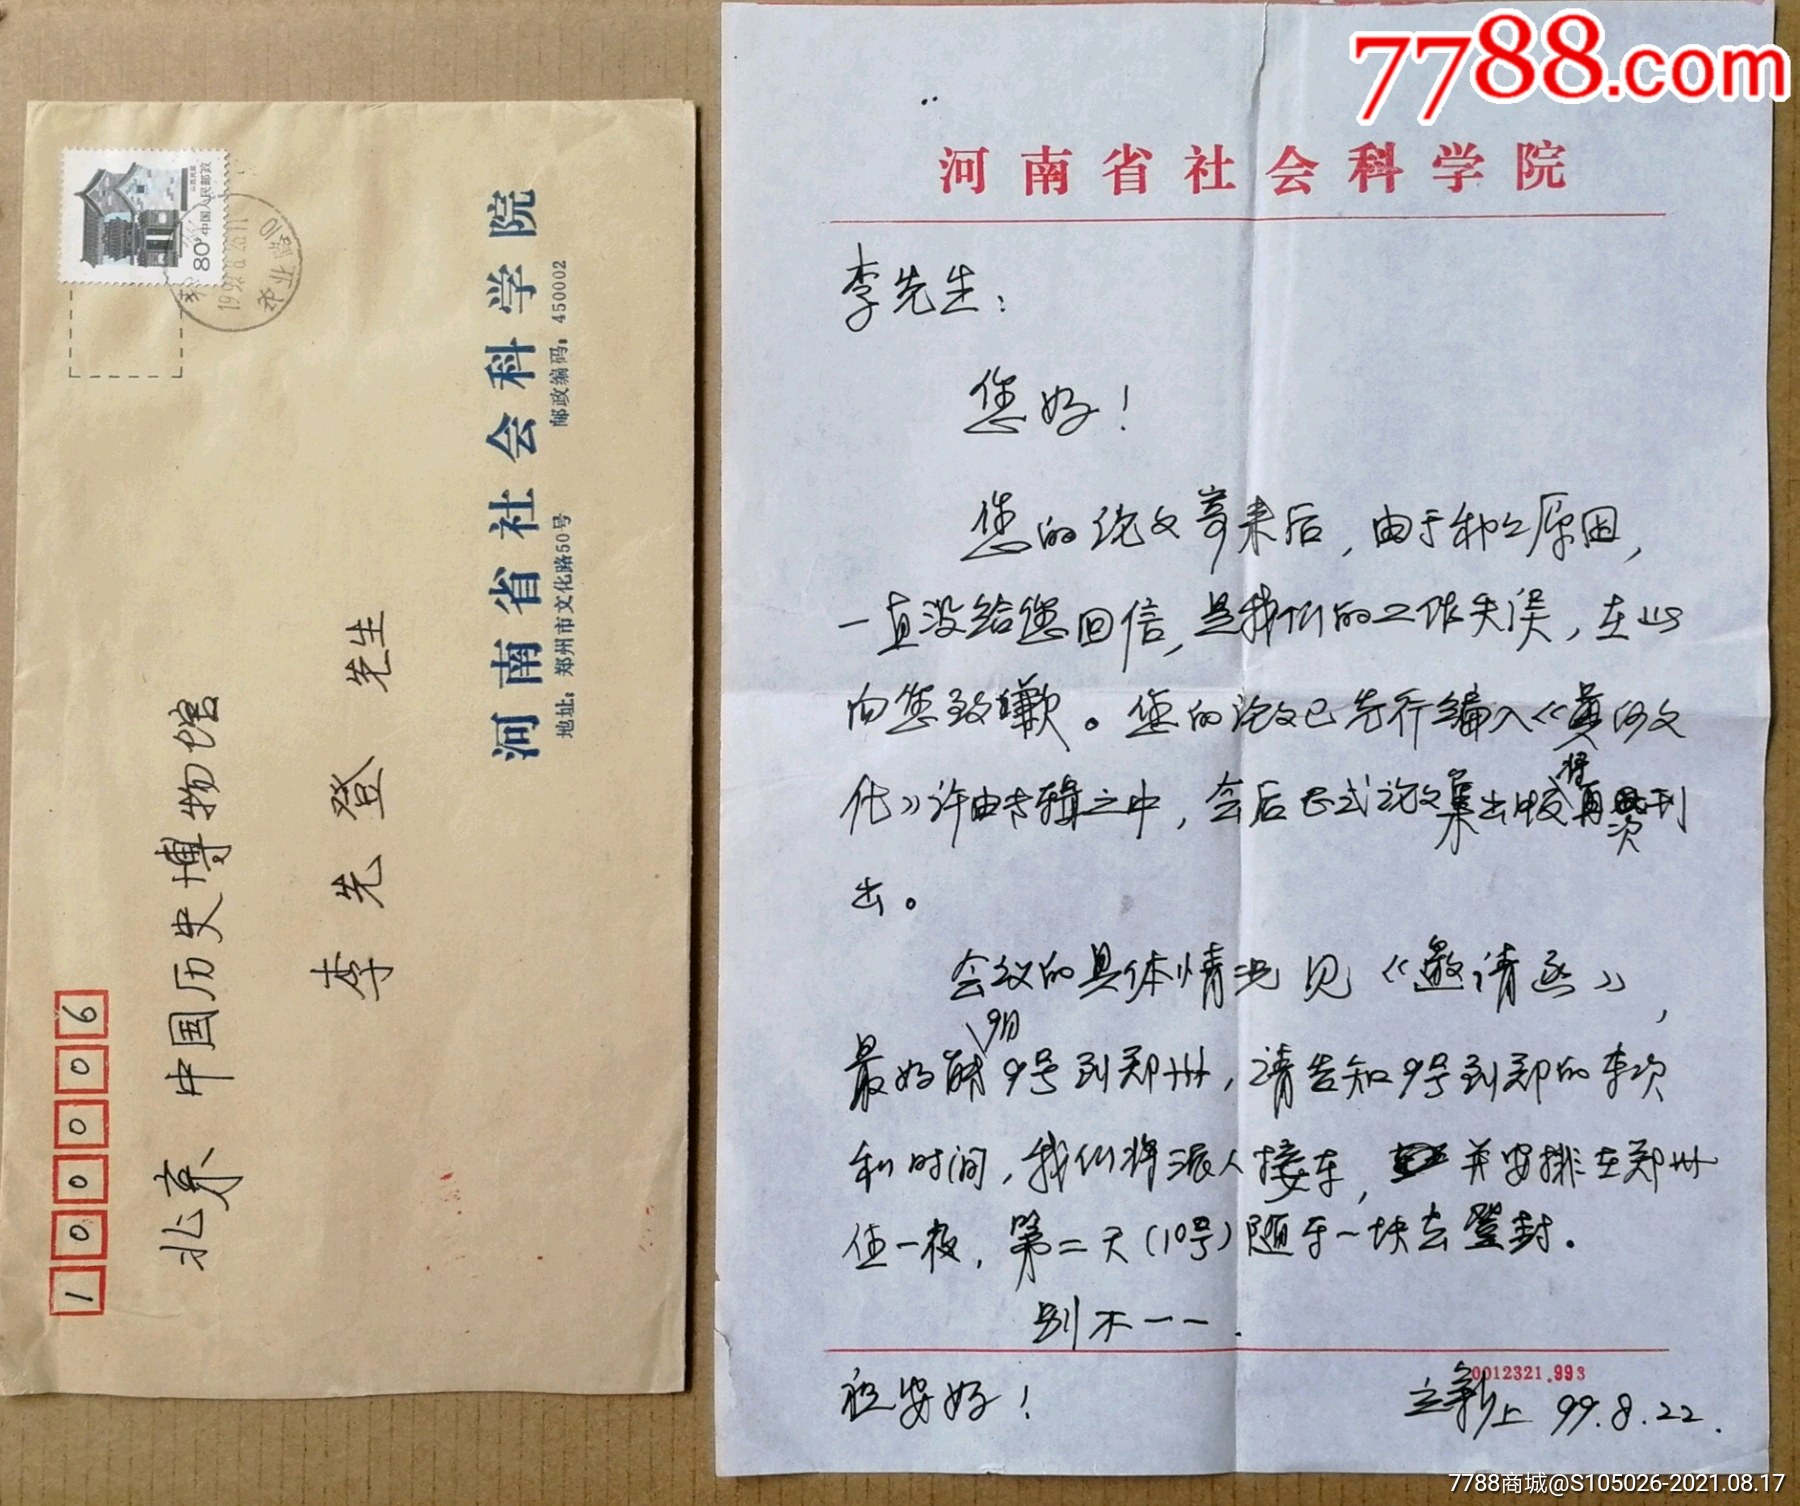 7788.com
中国人民邮政
80分
河南省社会科学院
地址：郑州市文化路50号 邮政编码：450002
100006
北京 中国历史博物馆
李先登 先生
河南省社会科学院
李先生：
您好！
您的论文寄来后，由于种种原因，
一直没给您回信，是我们的工作失误，在此
向您致歉。您的论文已先行编入《黄河文
化》许由专辑之中，会后正式论文集出版将再次刊
出。
会议的具体情况见《邀请函》，
最好能9月9号到郑州，请告知9号到郑的车次
和时间，我们将派人接车，并安排在郑州
住一夜，第二天（10号）随车一块去登封。
别不一一．
祝安好！
立新上 99.8.22.
0012321.993
7788商城@S105026-2021.08.17